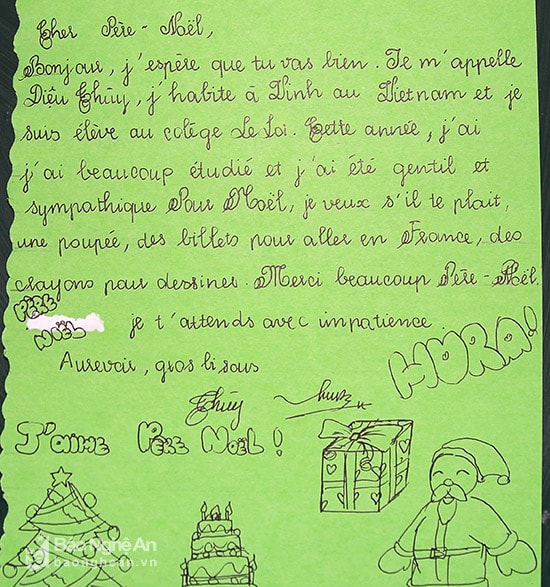 Cher Père-Noël,
Bonjour, j'espère que tu vas bien. Je m'appelle
Diêu Thùy, j'habite à Vinh au Vietnam et je
suis élève au colège Le Loi. Cette année, j'ai
j'ai beaucoup étudié et j'ai été gentil et
sympathique Pour Noël, je veux s'il te plait,
une poupée, des billets pour aller en France, des
crayons pour dessiner. Merci beaucoup Père-Noël.
PÈRE
NOËL
je t'attends avec impatience.
Aurevoir, gros bisous
HURA!
Thùy
J'aime Père Noël!
Báo Nghệ An
baonghean.vn